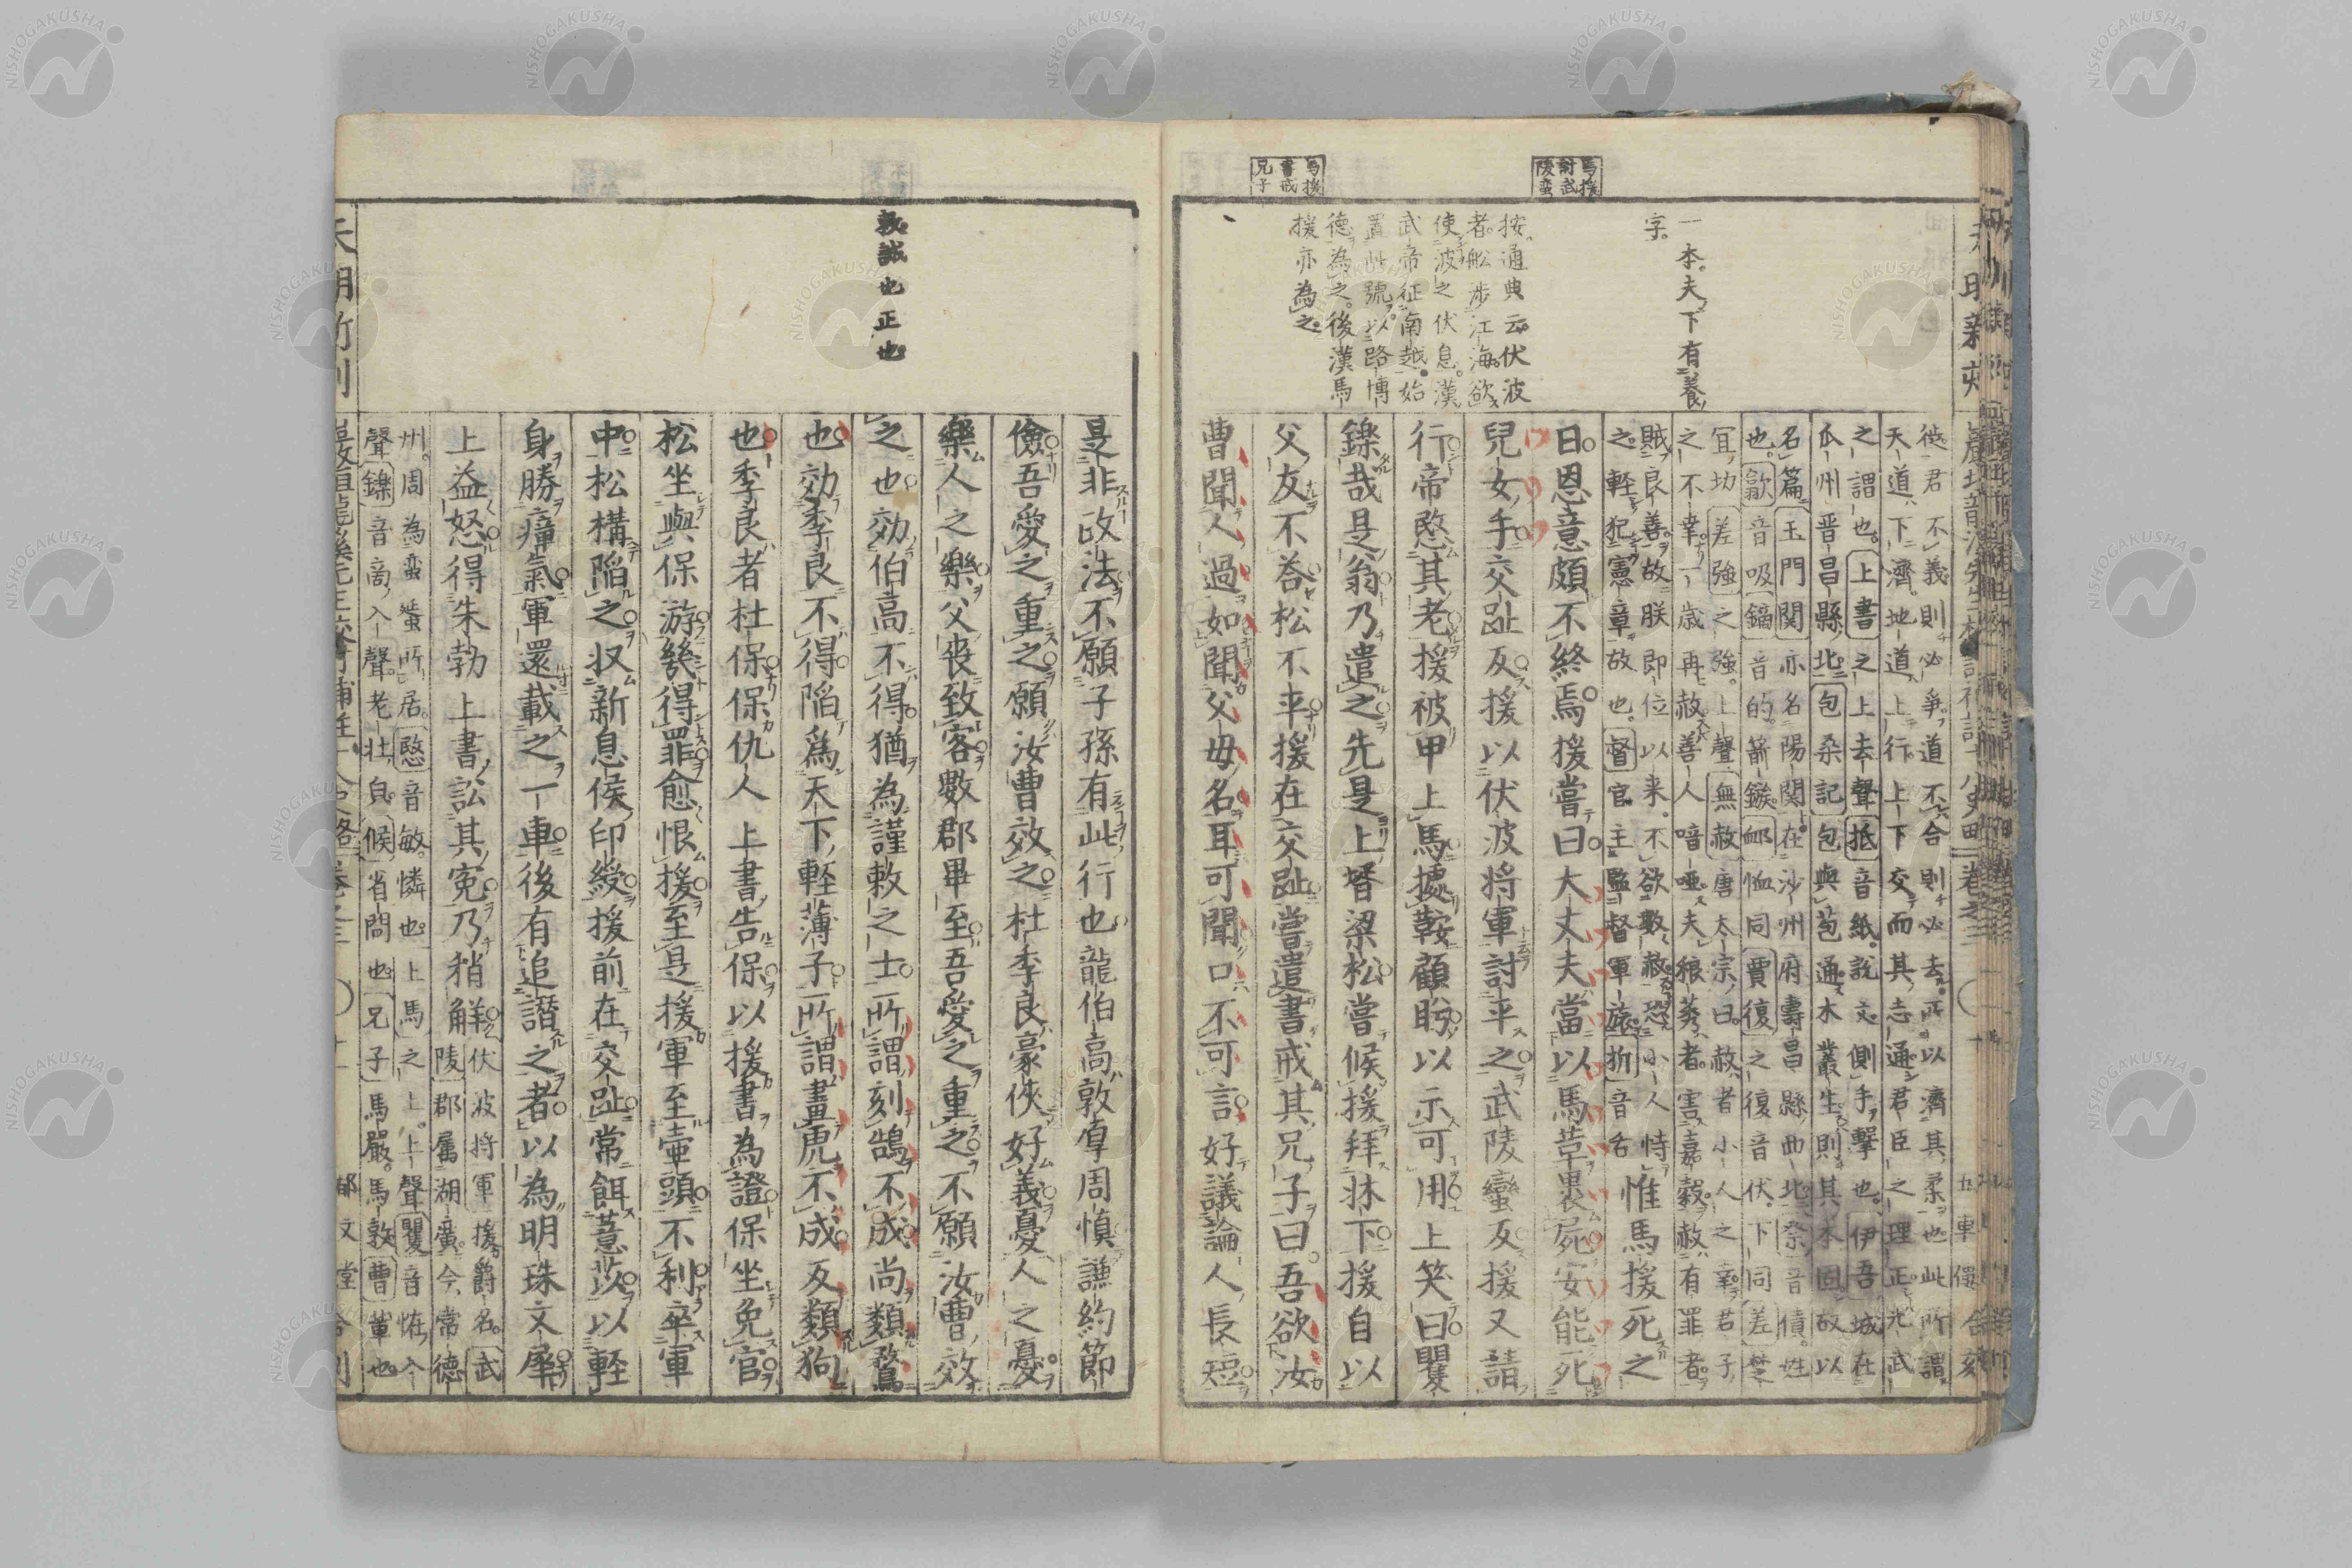 馬援
討武
陵蛮
馬援
書戒
兄子
一本夫下有養
字
按通典云伏波
者舩渉江海欲
使波之伏息漢
武帝征南越始
置此號以路博
德為之後漢馬
援亦為之
從君不義則必爭道不合則必去所以濟其柔也此所謂
天道下濟地道上行上下交而其志通君臣之理正光武
之謂也上書之上去聲抵音紙說文側手擊也伊吾城在
瓜州晋昌縣北包桑記包與苞通木叢生則其本固故以
名篇玉門関亦名陽関在沙州府壽昌縣西北祭音債姓
也歙音吸鏑音的箭鏃䘏恤同賈復之復音伏下同差楚
宜切差強之強上聲無赦唐太宗曰赦者小人之幸君子
之不幸一歳再赦善人喑唖夫稂莠者害嘉穀赦有罪者
賊良善故朕即位以来不欲數赦恐小人恃
之軽犯憲章故也督官主監督軍旅折音舌
惟馬援死之
日恩意頗不終焉援嘗曰大丈夫當以馬革裹屍安能死
兒女手交趾反援以伏波将軍討平之武陵蠻反援又請
行帝愍其老援被甲上馬據鞍顧眄以示可用上笑曰矍
鑠哉是翁乃遣之先是上壻梁松嘗候援拜牀下援自以
父友不荅松不平援在交趾嘗遣書戒其兄子曰吾欲汝
曹聞人過如聞父母名耳可聞口不可言好議論人長短
是非政法不願子孫有此行也龍伯高敦厚周慎謙約節
儉吾愛之重之願汝曹效之杜季良豪俠好義憂人之憂
樂人之樂父喪致客數郡畢至吾愛之重之不願汝曹效
之也効伯高不得猶為謹敕之士所謂刻鵠不成尚類鶩
也効季良不得陥為天下軽薄子所謂畫虎不成反類狗
也季良者杜保保仇人上書告保以援書為證保坐免官
松坐與保游幾得罪愈恨援至是援軍至壷頭不利卒軍
中松構陥之収新息侯印綬援前在交趾常餌薏苡以軽
身勝瘴氣軍還載之一車後有追譛之者以為明珠文犀
上益怒得朱勃上書訟其寃乃稍解
伏波将軍援爵名武
陵郡属湖廣今常德
州周為蛮蜑所居愍音敏憐也上馬之上上聲矍音怐入
聲鑠音啇入聲老壮貟候省問也兄子馬嚴馬敦曹軰也
敦誠也正也